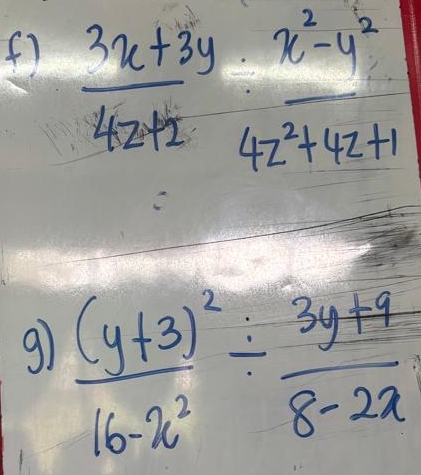 f) (3x+3y)/(4z+2) ÷ (x²-y²)/(4z²+4z+1)
g) (y+3)²/(16-x²) ÷ (3y+9)/(8-2x)